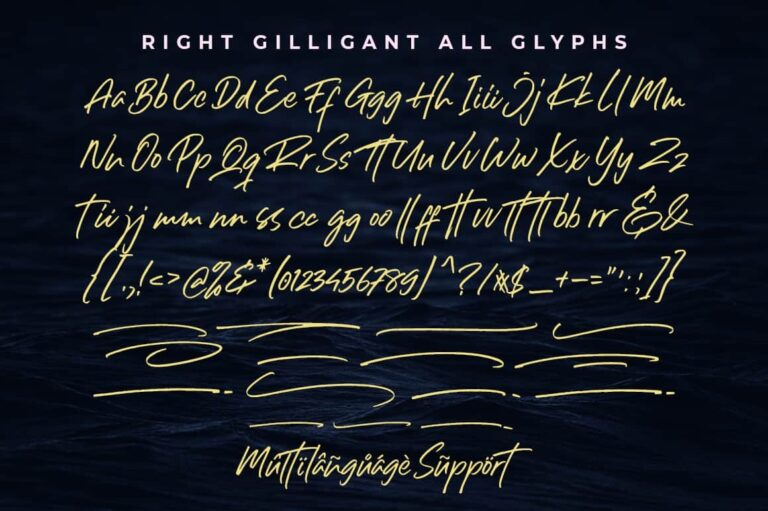 RIGHT GILLIGANT ALL GLYPHS
Aa Bb Cc Dd Ee Ff Ggg Hh Iiii Jj Kk Ll Mm
Nn Oo Pp Qq Rr Ss Tt Uu Vv Ww Xx Yy Zz
Ti ii jj mm nn ss cc gg oo ll ff tt vv tt tt bb rr & &
{ [ . , ! < > @ % & * ( 0 1 2 3 4 5 6 7 8 9 ) ^ ? / $ _ + - = " ' : ; ] }
Múlttïlâñgůágè Sũppört